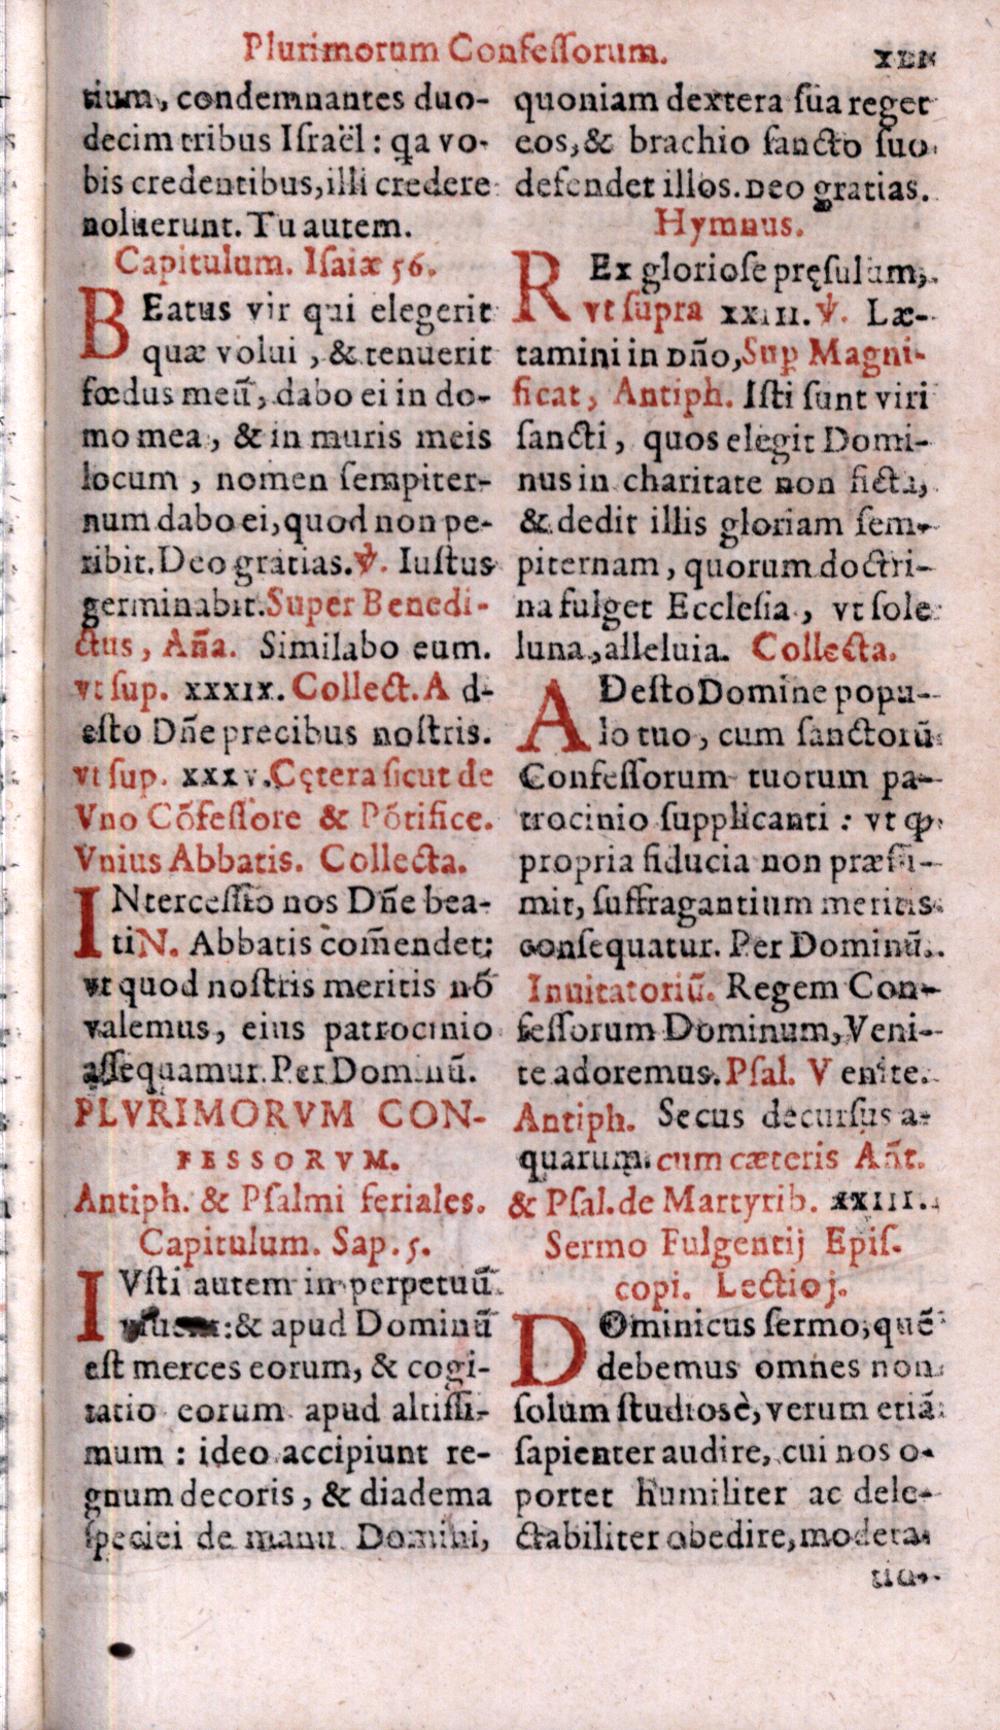 Plurimorum Confeſſorum.
tium, condemnantes duo-
decim tribus Iſraël: qa vo-
bis credentibus, illi credere
noluerunt. Tu autem.
Capitulum. Iſaiæ 56.
BEatus vir qui elegerit
quæ volui, & tenuerit
fœdus meū, dabo ei in do-
mo mea, & in muris meis
locum, nomen ſempiter-
num dabo ei, quod non pe-
ribit. Deo gratias. ℣. Iuſtus
germinabit. Super Benedi-
ctus, Aña. Similabo eum.
vt ſup. xxxix. Collect. A d-
eſto Dñe precibus noſtris.
vt ſup. xxxv. Cętera ſicut de
Vno Cōfeſſore & Pōtifice.
Vnius Abbatis. Collecta.
INterceſſio nos Dñe bea-
ti N. Abbatis com̄endet:
vt quod noſtris meritis nō
valemus, eius patrocinio
aſſequamur. Per Dominū.
PLVRIMORVM CON-
FESSORVM.
Antiph. & Pſalmi feriales.
Capitulum. Sap. 5.
IVſti autem in perpetuū
:& apud Dominū
eſt merces eorum, & cogi-
tatio eorum apud altiſſi-
mum : ideo accipiunt re-
gnum decoris, & diadema
ſpeciei de manu Domini,
quoniam dextera ſua reget
eos, & brachio ſancto ſuo
defendet illos. Deo gratias.
Hymnus.
REx glorioſe pręſulum,
vt ſupra xxiii. ℣. Læ-
tamini in Dño, Sup Magni-
ficat, Antiph. Iſti ſunt viri
ſancti, quos elegit Domi-
nus in charitate non ficta,
& dedit illis gloriam ſem-
piternam, quorum doctri-
na fulget Eccleſia, vt ſole
luna, alleluia. Collecta.
ADeſto Domine popu-
lo tuo, cum ſanctorū
Confeſſorum tuorum pa-
trocinio ſupplicanti : vt ꝙ
propria fiducia non præſu-
mit, ſuffragantium meritis
conſequatur. Per Dominū.
Inuitatoriū. Regem Con-
feſſorum Dominum, Veni-
te adoremus. Pſal. V enite.
Antiph. Secus decurſus a-
quarum. cum cæteris Añt.
& Pſal. de Martyrib. xxiii.
Sermo Fulgentij Epiſ-
copi. Lectio j.
DOminicus ſermo, quē
debemus omnes non
ſolum ſtudiosè, verum etiā
ſapienter audire, cui nos o-
portet humiliter ac dele-
ctabiliter obedire, modera-